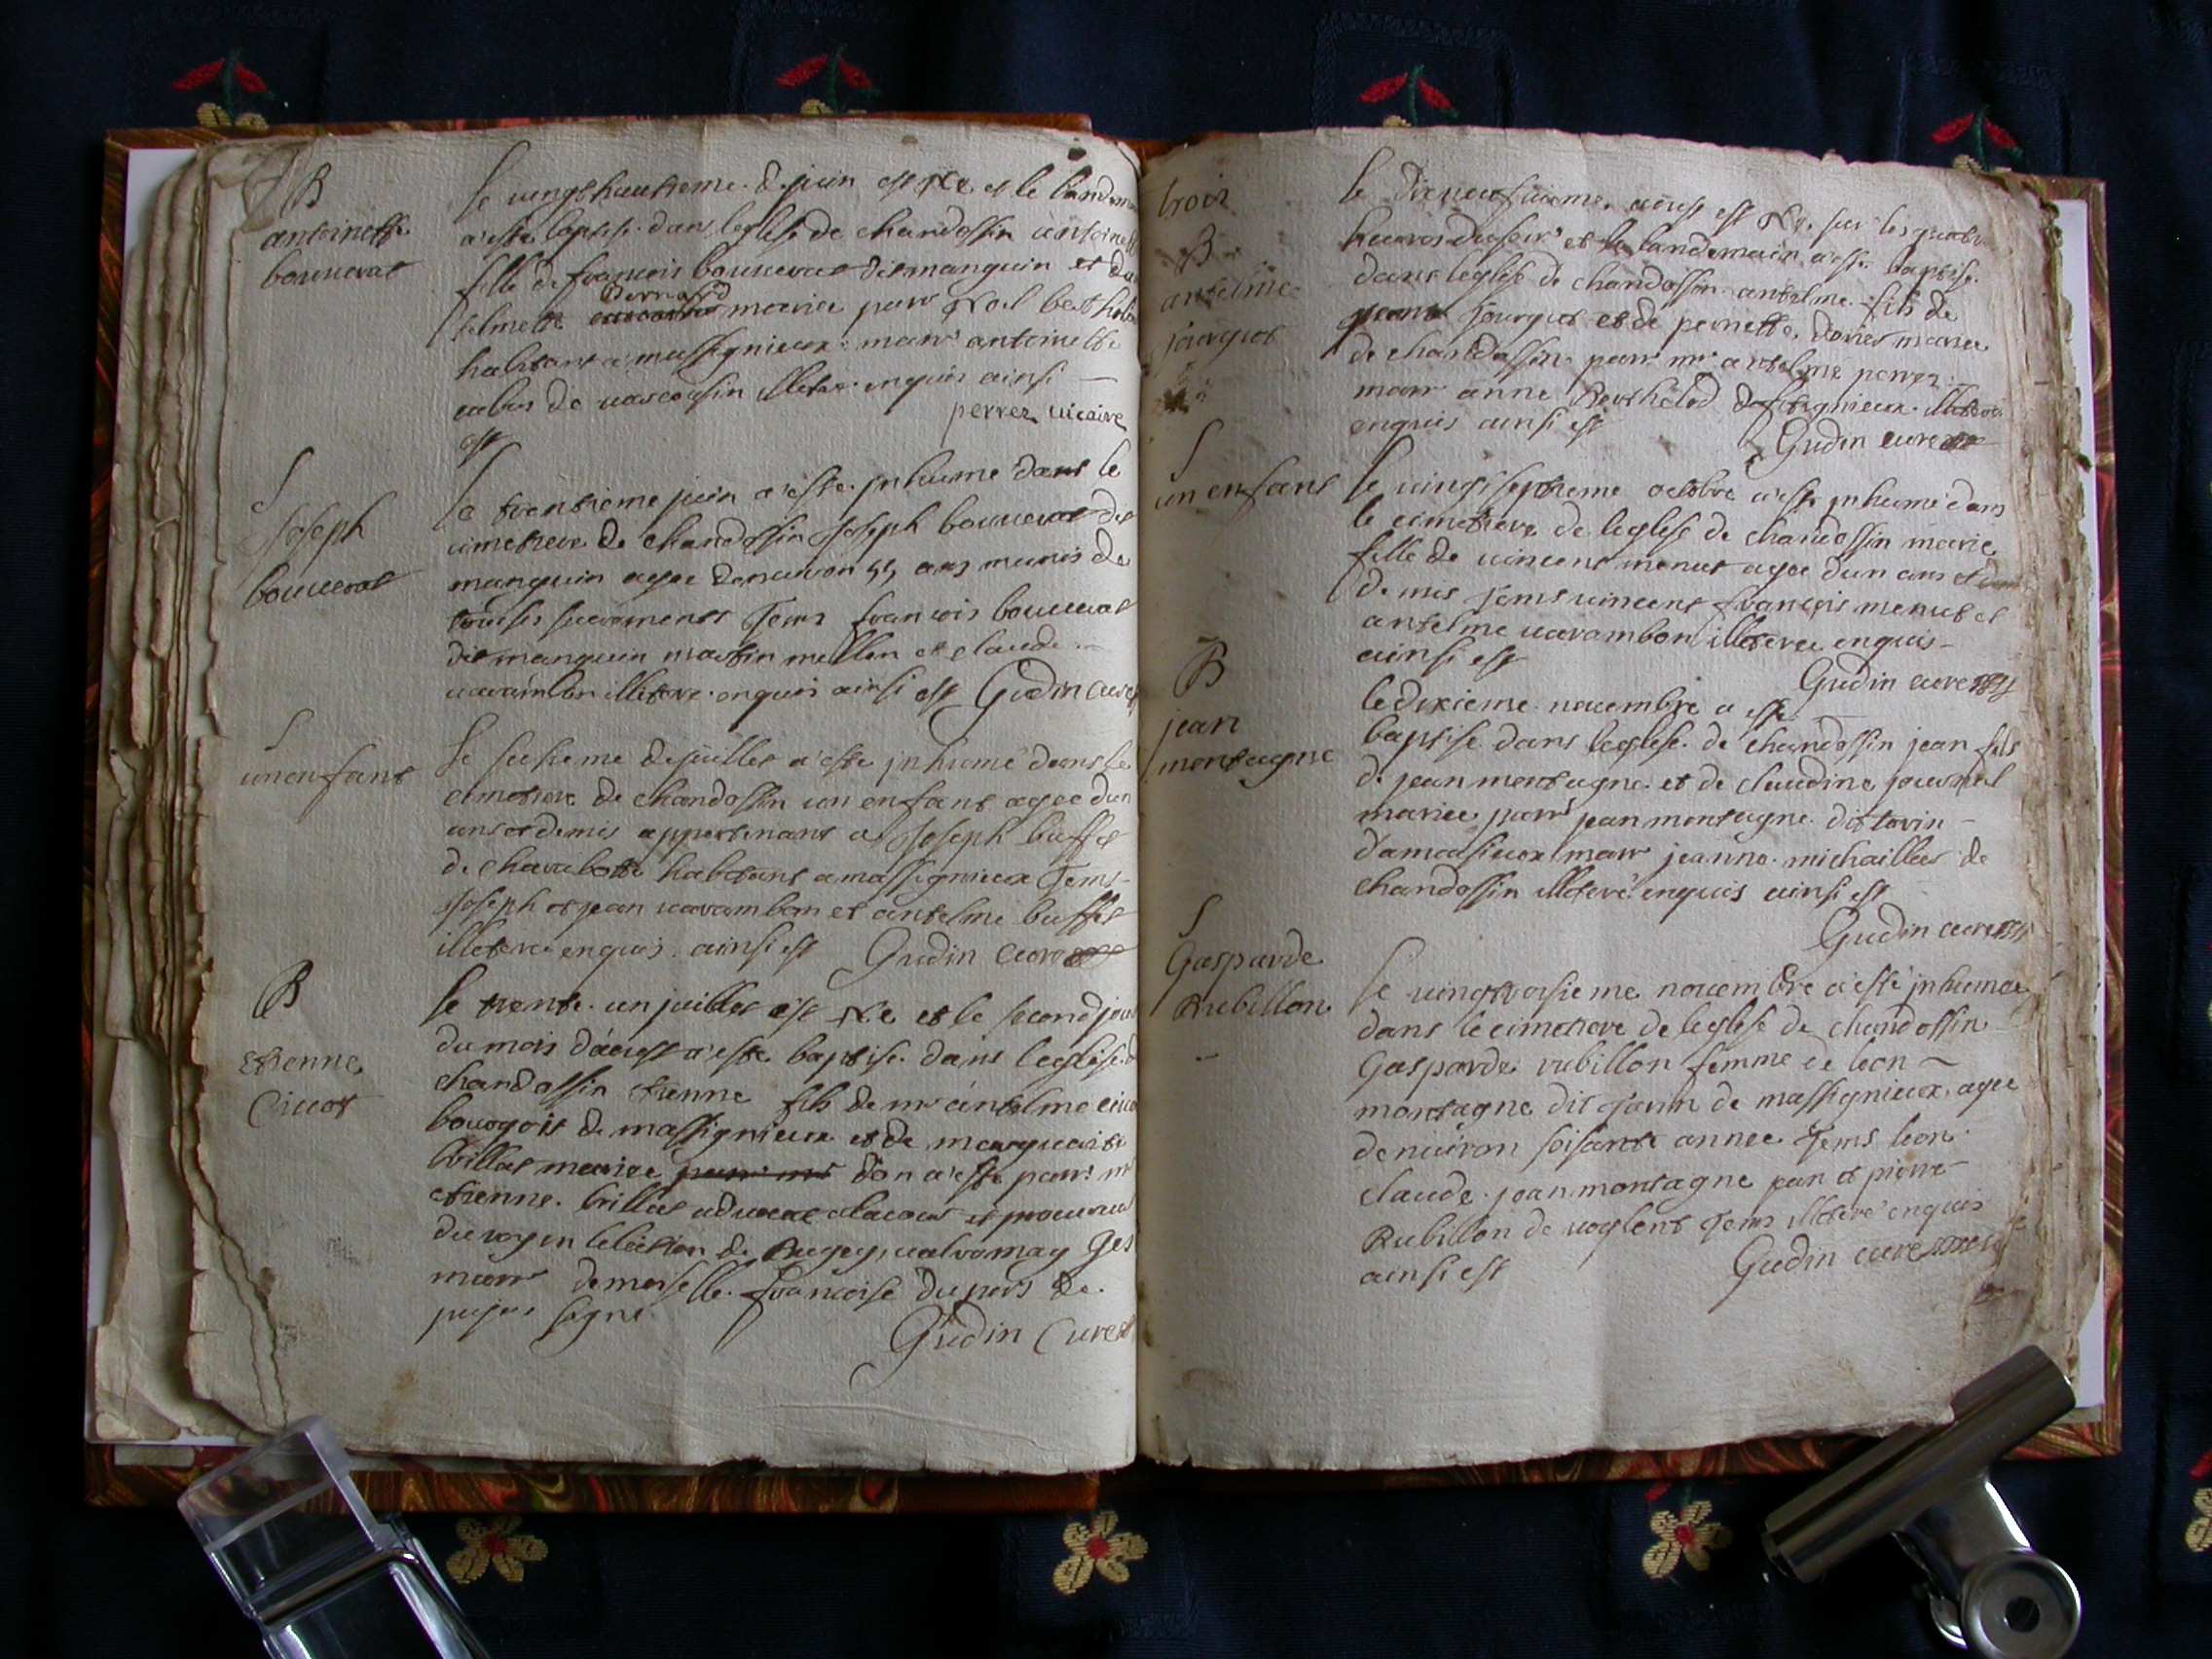 B
antoinette
bouuerat
le uingt huitieme de juin est Ne et le landem
a este baptise dans leglise de chandossin antoinett
fille de francois bouuerat dit manguin et d
telmette Bernard mariez parr Noel berthol
habitant a massignieux marr antoinette
de uascoussin illetere enquis ainsi
est
perrez uicaire
S
Joseph
bouuerat
le trentieme juin a este jnhume dans le
cimetiere de chandossin Joseph bouuerat dit
manguin agee denuiron 55 ans munis de
sacrements Tems francois bouuerat
dit manguin martin mellon et claude
uarambon illetere enquis ainsi est Gudin cure
S
un enfant
le de juillet a este jnhume dans le
cimetiere de chandossin un enfant agee dun
ans et demis appartenant a Joseph buffet
de habitant a massignieux Tems
Joseph et jean uarambon et antelme buffet
illetere enquis ainsi est Gudin cure
B
Etienne
Ciuot
le trente un juillet est Ne et le second jour
du mois daoust a este baptise dans leglise d
chandossin etienne fils de mr antelme ciuo
bourgois de massignieux et de marguaite
brillat mariee parr mr don a este parr mr
etienne brillat aduocat alacour et procureur
du roy en lelection de Bugey, ualromay Gex
marr demoiselle francoise du port de
pujeu signe
Gudin Cure
trois
B
antelme
jourquot
le dixneufuieme aoust est Ne sur les quatre
heures du soir et le landemain a este baptise
dans leglise de chandossin antelme fils de
jourquot et de pernette mariee
de chandossin parr mr antelme perrez
marr anne Berthelod illetere
enquis ainsi est
Gudin cure
S
un enfant
le uingt septieme octobre a este jnhume dans
le cimetiere de leglise de chandossin marie
fille de uincent menut agee dun ans et
demis Tems uincent francois menut et
antelme uarambon illetere enquis
ainsi est
Gudin cure
B
jean
montagne
le dixieme nouembre a este
baptise dans leglise de chandossin jean fils
de jean montagne et de claudine
mariee parr jean montagne dit tarin
marr jeanne michaillet de
chandossin illetere enquis ainsi est
Gudin cure
S
Gasparde
Rubillon
le uingt troisieme nouembre a este jnhumee
dans le cimetiere de leglise de chandossin
Gasparde rubillon femme de leon
montagne dit tarin de massignieux, agee
denuiron soisante annee Tems leon
claude jean montagne jean et pierre
Rubillon de Tems illetere enquis
ainsi est
Gudin cure